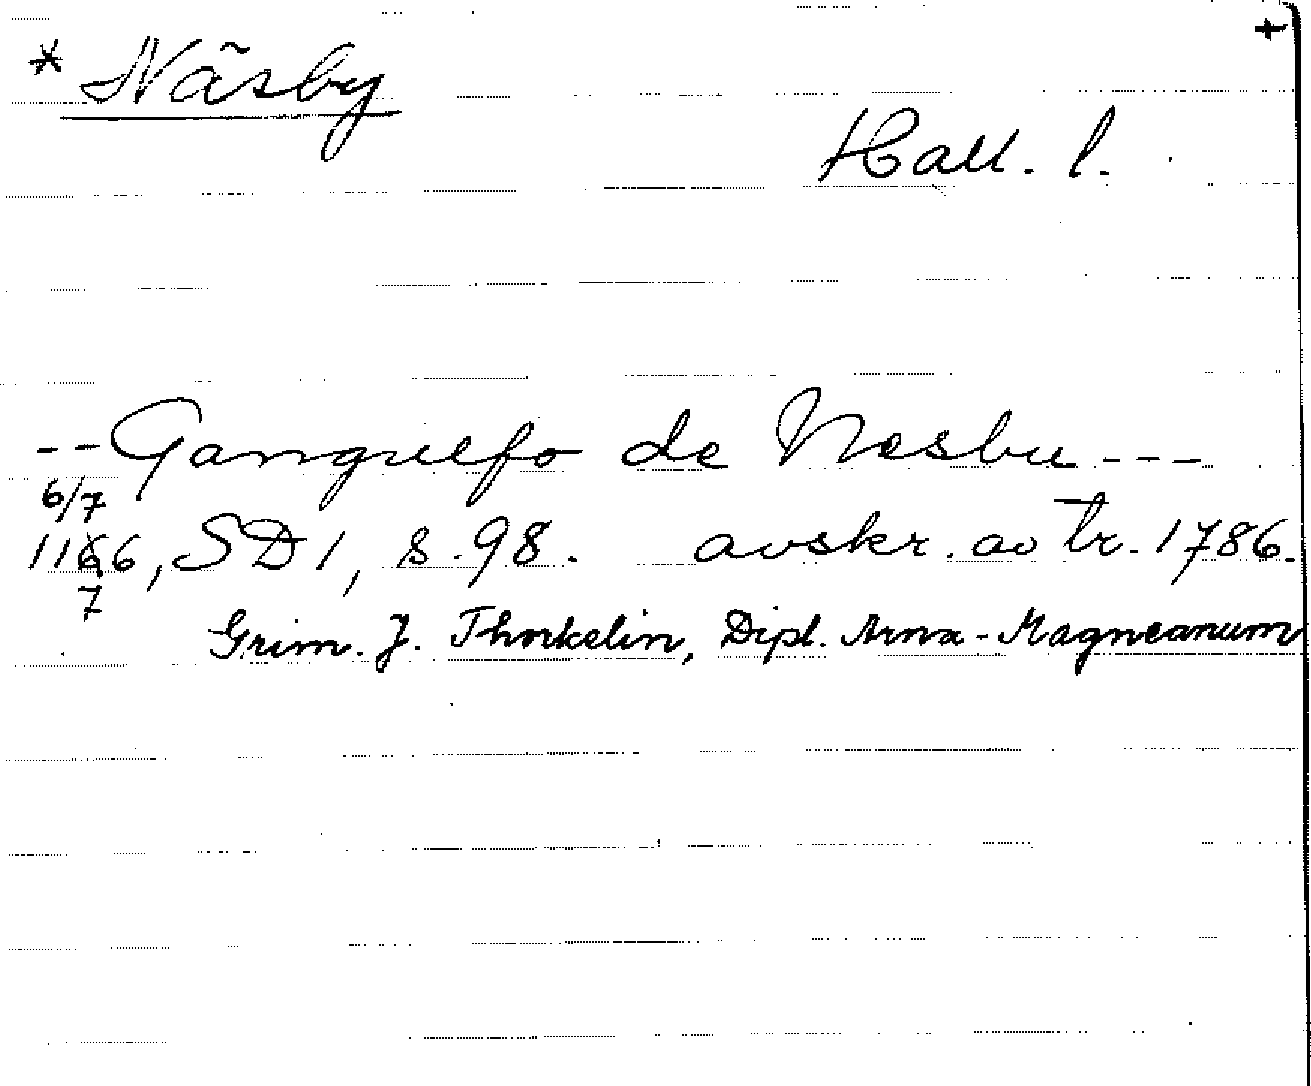 +
* Näsby
Hall. l.
--Ganguefo de Nesbu---
6/7
1166, SD 1, s. 98. avskr. av tr. 1786.
7
Grim. J. Thorkelin, Dipl. Arna-Magneanum